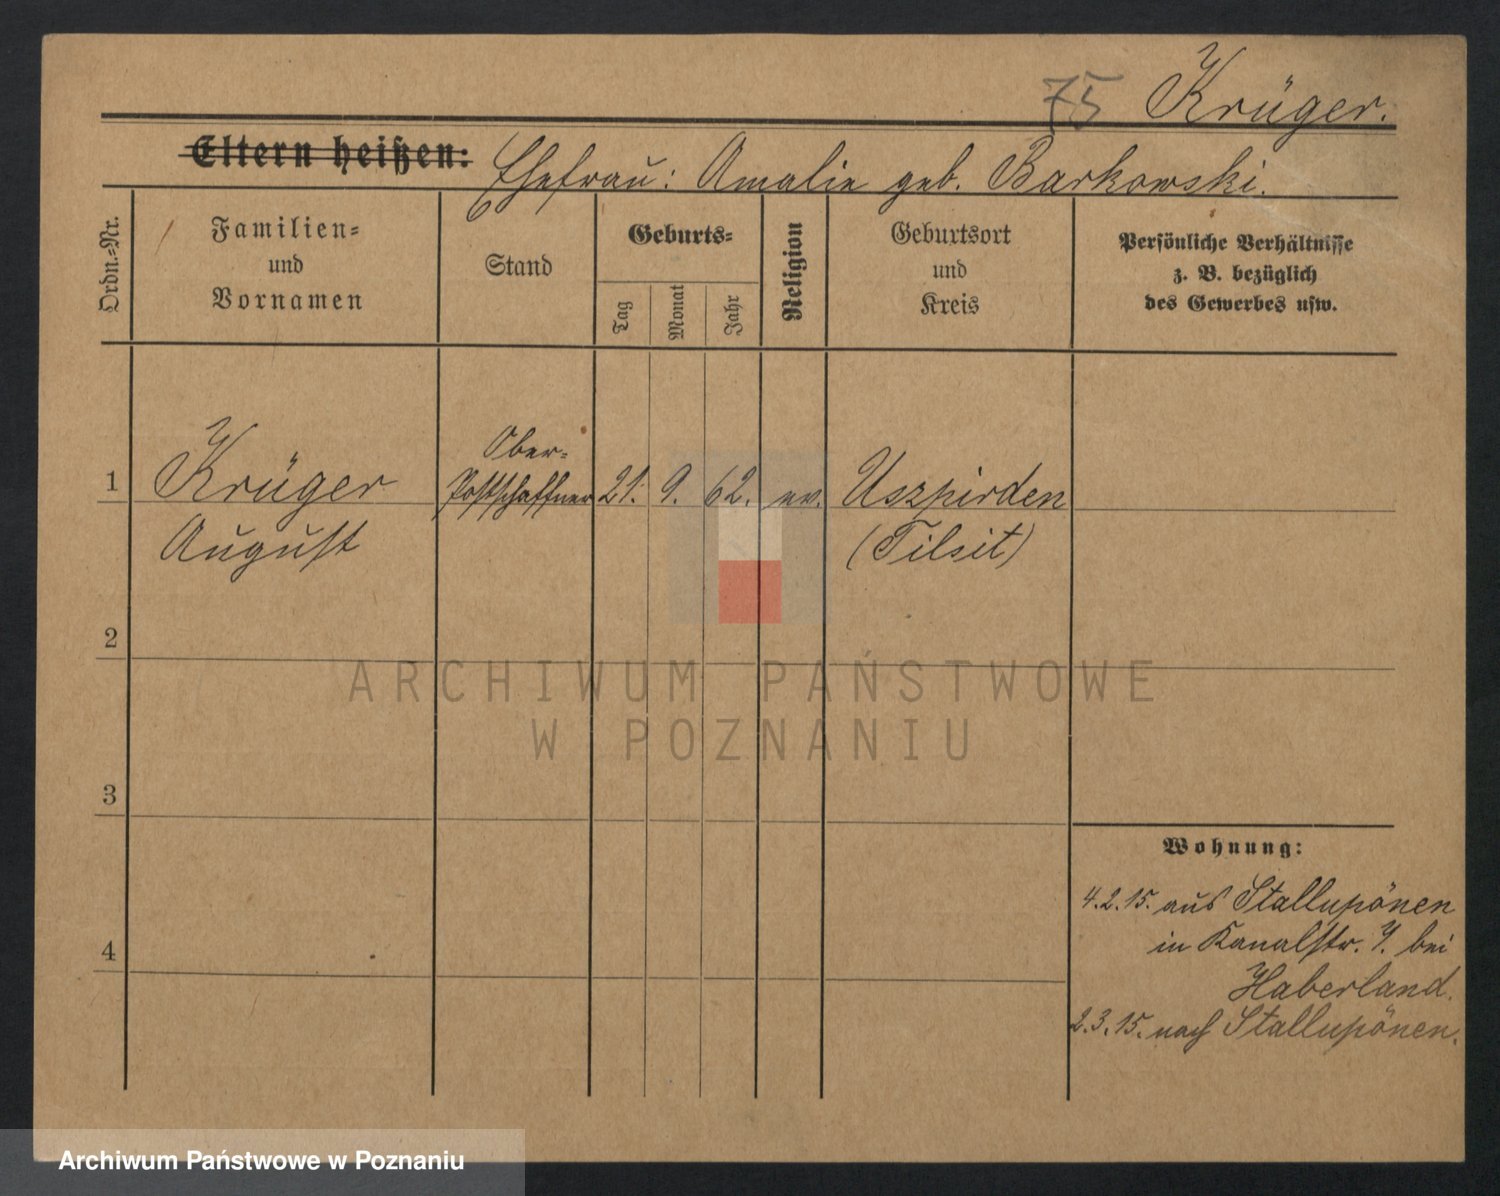 75 Krüger.
Eltern heißen: Ehefrau: Amalie geb. Barkowski.
Ordn.=Nr.
Familien=
und
Vornamen
Stand
Geburts=
Tag
Monat
Jahr
Religion
Geburtsort
und
Kreis
Persönliche Verhältnisse
z. B. bezüglich
des Gewerbes usw.
Ober-
1 Krüger Postschaffner 21. 9. 62. ev. Uszpirden
August (Tilsit)
2
3
4
Wohnung:
4.2.15. aus Stallupönen
in Kanalstr. 7. bei
Haberland.
2.3.15. nach Stallupönen.
ARCHIWUM PAŃSTWOWE
W POZNANIU
Archiwum Państwowe w Poznaniu